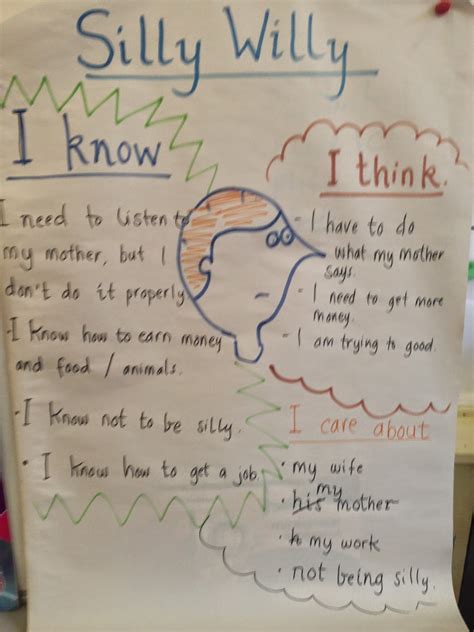 Silly Willy
I know
I need to listen to
my mother, but I
don't do it properly
-I know how to earn money
and food / animals.
• I know not to be silly.
• I know how to get a job
I think.
- I have to do
what my mother
says.
- I need to get more
money.
- I am trying to good.
I care about
• my wife
my
• his mother
• h my work
• not being silly.